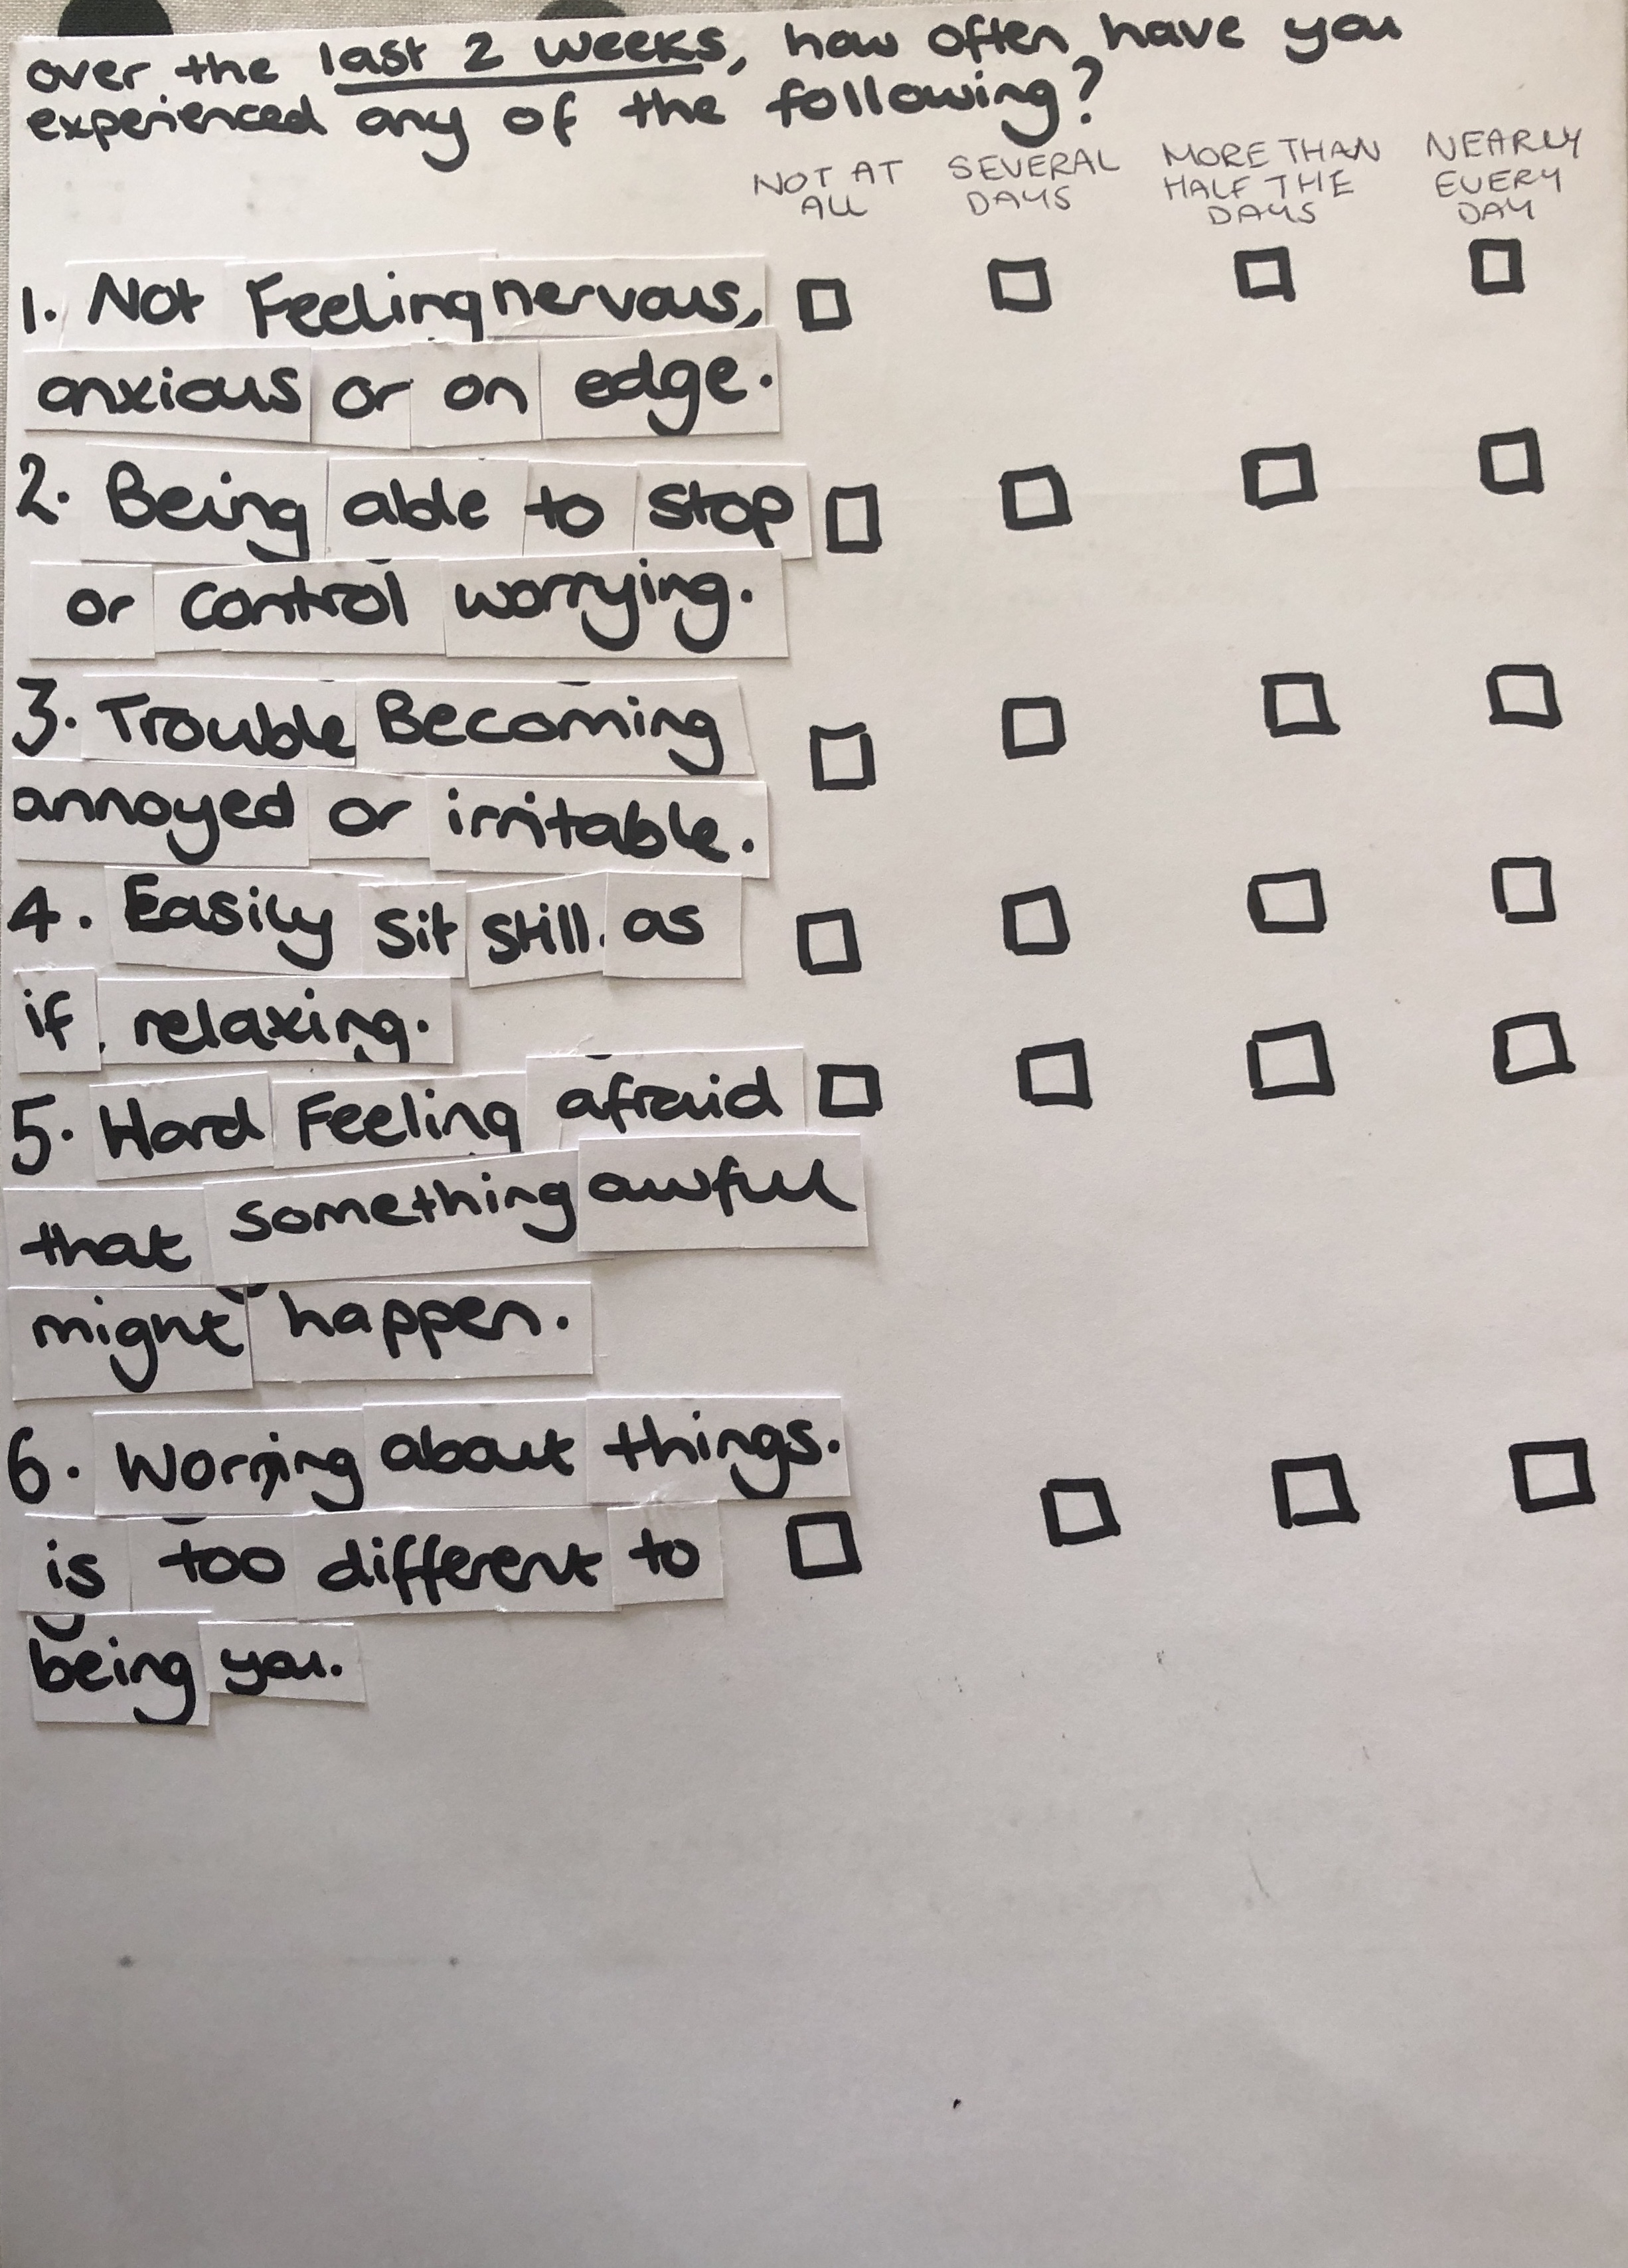 over the last 2 weeks, how often have you
experienced any of the following?
NOT AT ALL
SEVERAL DAYS
MORE THAN HALF THE DAYS
NEARLY EVERY DAY
1. Not Feeling nervous,
anxious or on edge.
2. Being able to stop
or control worrying.
3. Trouble Becoming
annoyed or irritable.
4. Easily sit still. as
if relaxing.
5. Hard Feeling afraid
that something awful
might happen.
6. Worrying about things.
is too different to
being you.